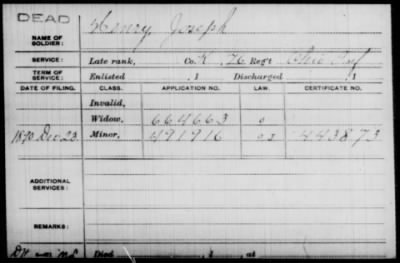 DEAD
Henry Joseph
NAME OF SOLDIER:
SERVICE: Late rank, Co. K, 76 Reg't Ohio Inf
TERM OF SERVICE: Enlisted , 1 Discharged , 1
DATE OF FILING. CLASS. APPLICATION NO. LAW. CERTIFICATE NO.
Invalid,
Widow, 664663
1890 Dec 23 Minor, 491916 443873
ADDITIONAL SERVICES:
REMARKS:
Died , 1 , at